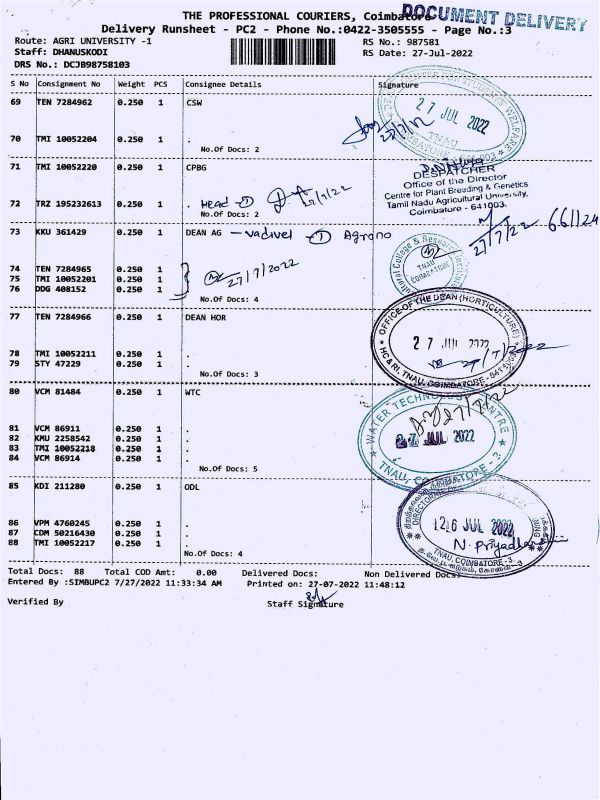 THE PROFESSIONAL COURIERS, Coimbatore
DOCUMENT DELIVERY
Delivery Runsheet - PC2 - Phone No.:0422-3505555 - Page No.:3
Route: AGRI UNIVERSITY -1
RS No.: 987581
Staff: DHANUSKODI
RS Date: 27-Jul-2022
DRS No.: DCJB98758103
S No Consignment No Weight PCS Consignee Details Signature
69 TEN 7284962 0.250 1 CSW
27 JUL 2022
TNAU
70 TMI 10052204 0.250 1 .
No.Of Docs: 2
71 TMI 10052220 0.250 1 CPBG
DESPATCHER
Office of the Director
Centre for Plant Breeding & Genetics
Tamil Nadu Agricultural University,
Coimbatore - 641003.
72 TRZ 195232613 0.250 1 . Head - 1
No.Of Docs: 2
73 KKU 361429 0.250 1 DEAN AG - vadivel - 1 Agrono
27/7/22 661124
74 TEN 7284965 0.250 1
75 TMI 10052201 0.250 1 27/7/2022
76 DDG 408152 0.250 1
No.Of Docs: 4
TNAU
COIMBATORE
77 TEN 7284966 0.250 1 DEAN HOR
OFFICE OF THE DEAN (HORTICULTURE)
27 JUL 2022
HC & RI, TNAU, COIMBATORE - 641
78 TMI 10052211 0.250 1 .
79 STY 47229 0.250 1 .
No.Of Docs: 3
80 VCM 81484 0.250 1 WTC
WATER TECHNOLOGY CENTRE
27 JUL 2022
TNAU, COIMBATORE - 3
81 VCM 86911 0.250 1 .
82 KMU 2258542 0.250 1 .
83 TMI 10052218 0.250 1 .
84 VCM 86914 0.250 1 .
No.Of Docs: 5
85 KDI 211280 0.250 1 ODL
26 JUL 2022
TNAU, COIMBATORE - 3
86 VPM 4760245 0.250 1 .
87 CDM 50216430 0.250 1 .
88 TMI 10052217 0.250 1 .
No.Of Docs: 4
Total Docs: 88 Total COD Amt: 0.00 Delivered Docs: Non Delivered Docs:
Entered By :SIMBUPC2 7/27/2022 11:33:34 AM Printed on: 27-07-2022 11:48:12
Verified By
Staff Signature